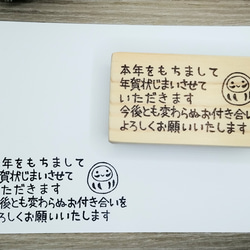 本年をもちまして
年賀状じまいさせて
いただきます
今後とも変わらぬお付き合いを
よろしくお願いいたします
本年をもちまして
賀状じまいさせて
ただきます
後とも変わらぬお付き合いを
ろしくお願いいたします